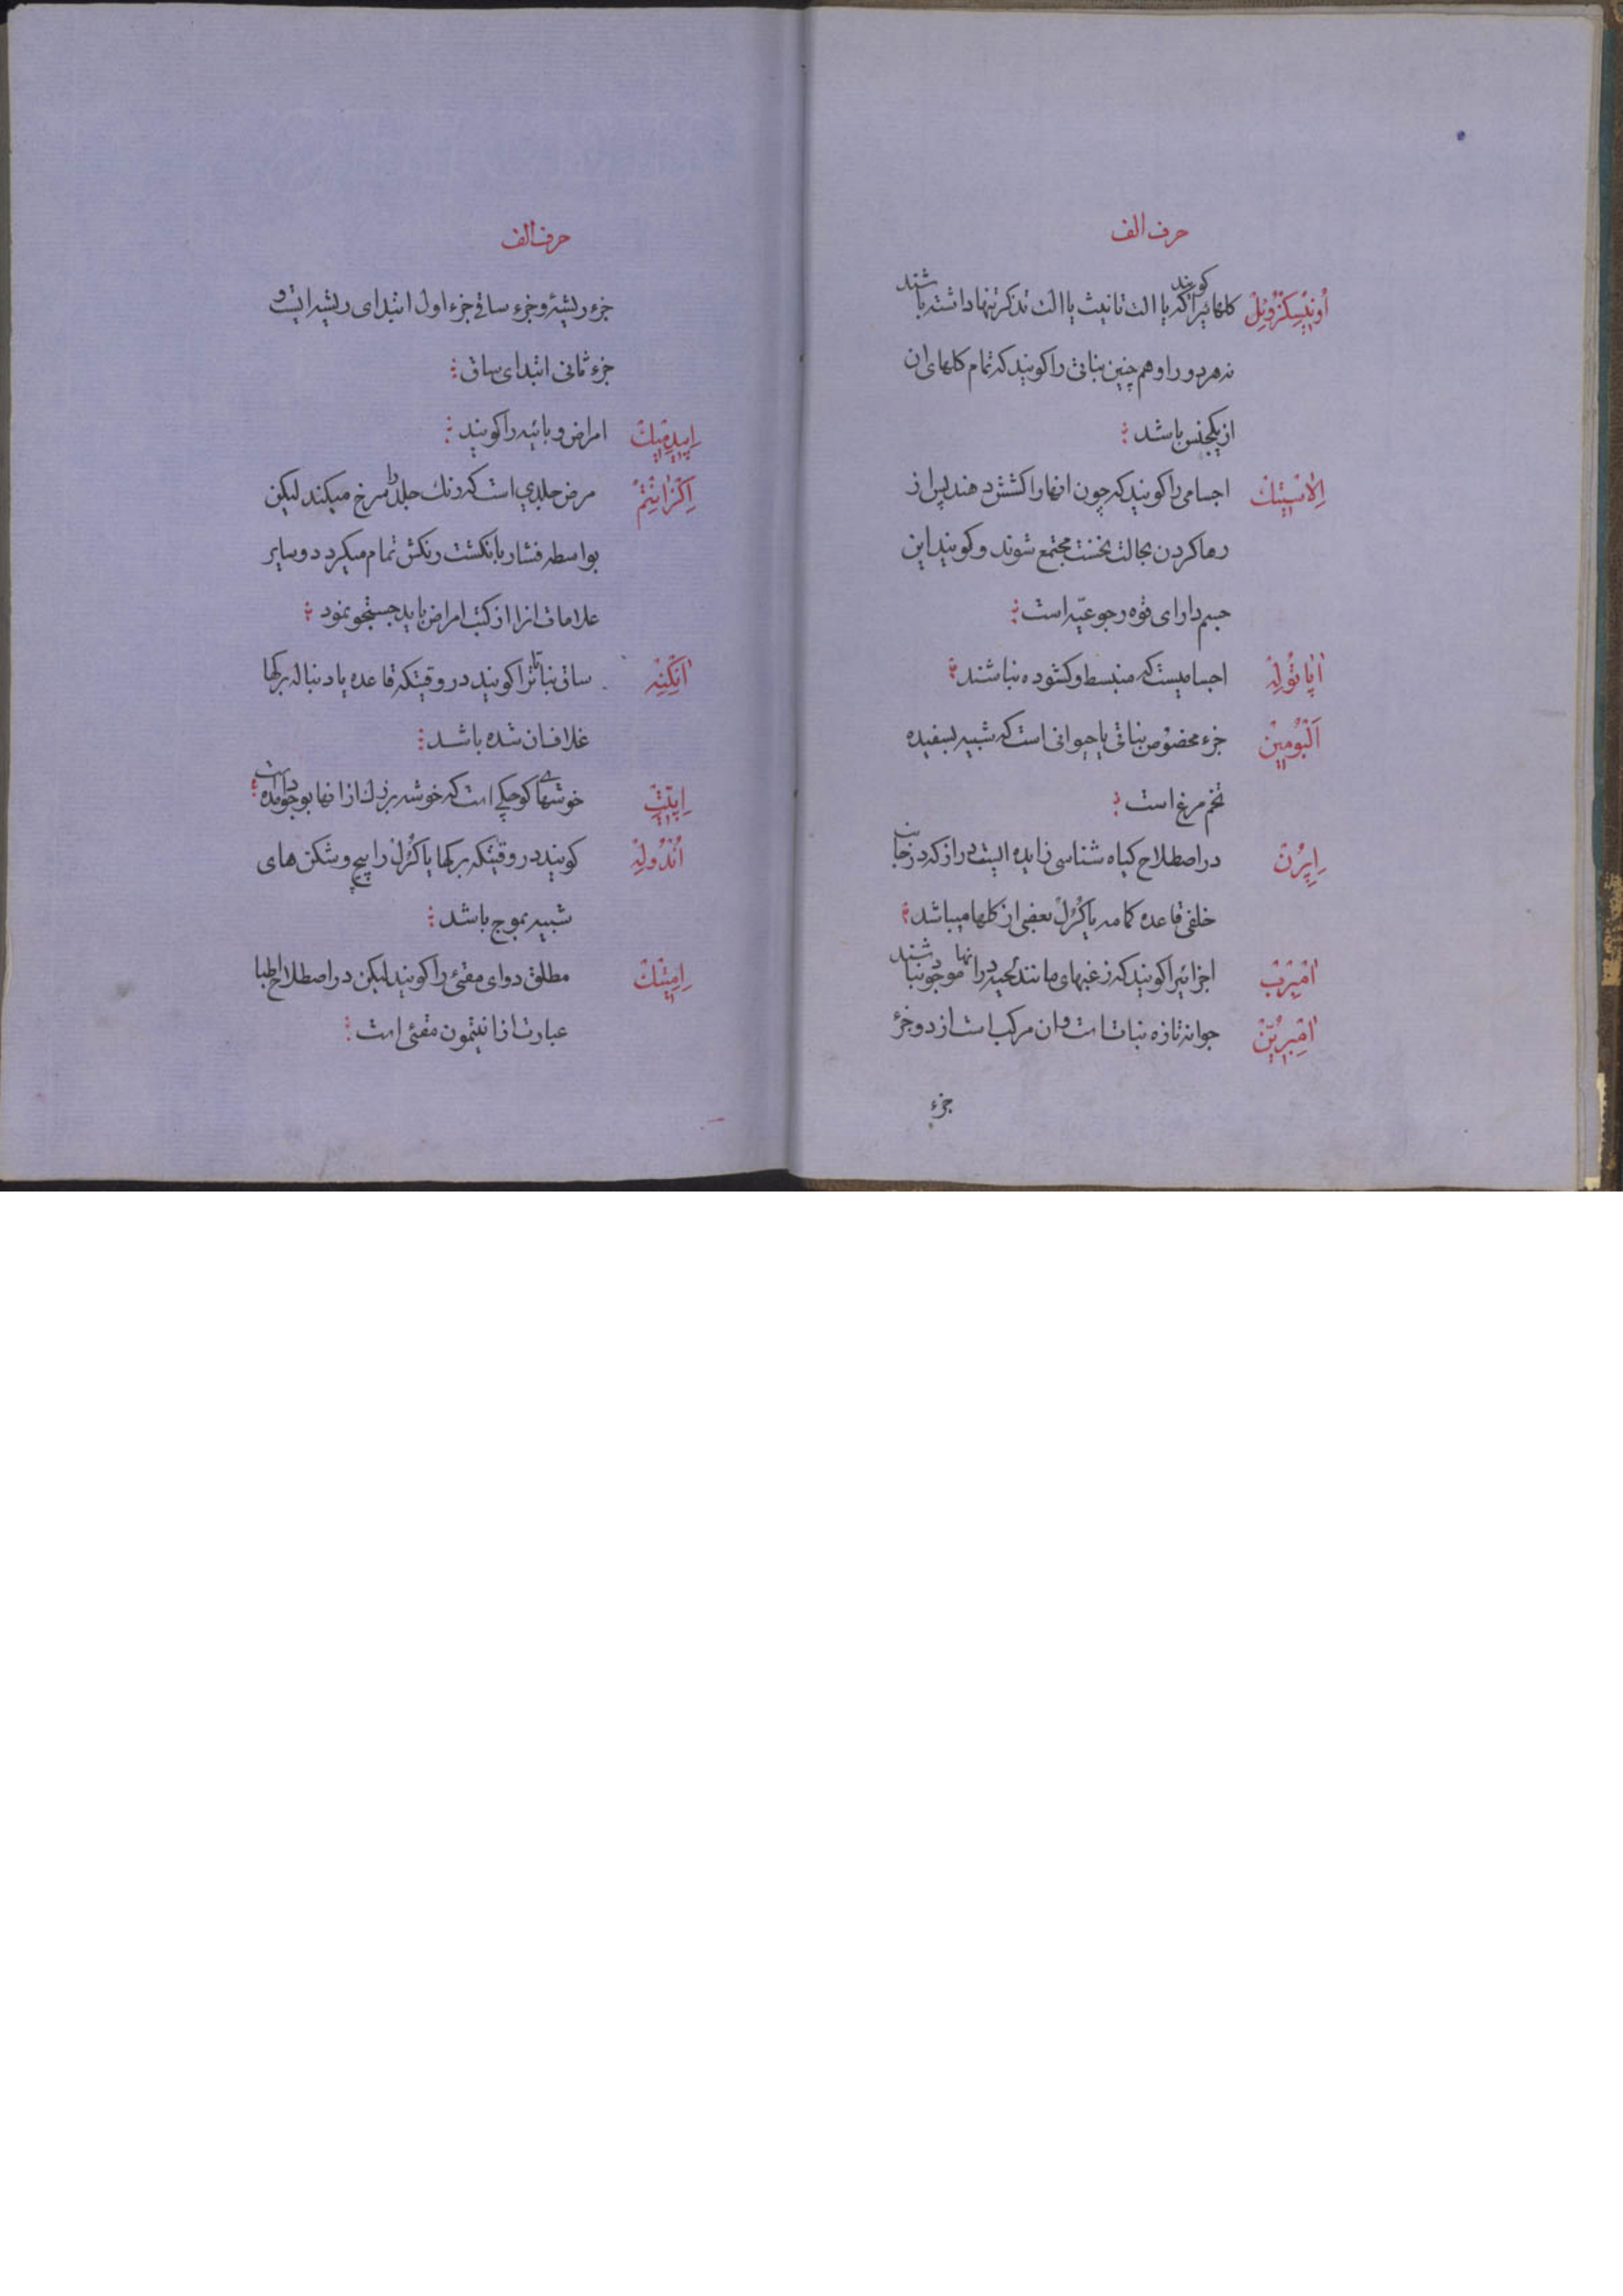 حرف الف
اُونیْسِکْزْوُئِلْ کلهائیرا کویند که یا الت تانیث یا الت تذکر تنها داشته باشند
نه هر دو را و هم چنین نباتی را کویند که تمام کلهای ان
از یکجنس باشد
اِلاسْتیک اجسامی را کویند که چون انها را کشش دهند پس از
رها کردن بحالت نخست مجتمع شوند و کویند این
جسم دارای قوه رجوعیّه است
اٰپاتُولِهْ اجسامیست که منبسط و کشوده نباشند
اَلْبُومینْ جزء مخصوص نباتی یا حیوانی است که شبیه بسفیده
تخم مرغ است
اِپِرُنْ در اصطلاح کیاه شناسی زایده ایست دراز که در جانب
خلفی قاعده کامه یا کُرُلْ بعضی از کلها میباشد
اٰمْبِرْبْ اجزائیرا کویند که زغبهای مانند لحیه در انها موجود نباشند
اٰمْبِرِیُنْ جوانه تازه نباتات و ان مرکب است از دو جزء
جزء
حرف الف
جزء ریشیهٔ و جزء ساقی جزء اول ابتدای ریشه است و
جزء ثانی ابتدای ساق
اِپیدِمیکْ امراض وبائیه را کویند
اِکْزانْتِمْ مرض جلدی است که رنك جلد را سرخ میکند لیکن
بواسطه فشار با نکشت رنکش تمام میکردد و سایر
علامات انرا از کتب امراض باید جستجو نمود
اٰنْکِنِهْ ساق نباتاترا کویند در وقتیکه قاعده یا دنباله برکها
غلاف ان شده باشد
اِپِیّتْ خوشهای کوچکی است که خوشه بزرك از انها بوجود امده است
اُنْدُولِهْ کویند در وقتیکه برکها یا کُرُلْ را پیچ و شکن های
شبیه بموج باشد
اِمِتیكْ مطلق دوای مقئی را کویند لیکن در اصطلاح اطبا
عبارت از انتیمون مقئی است